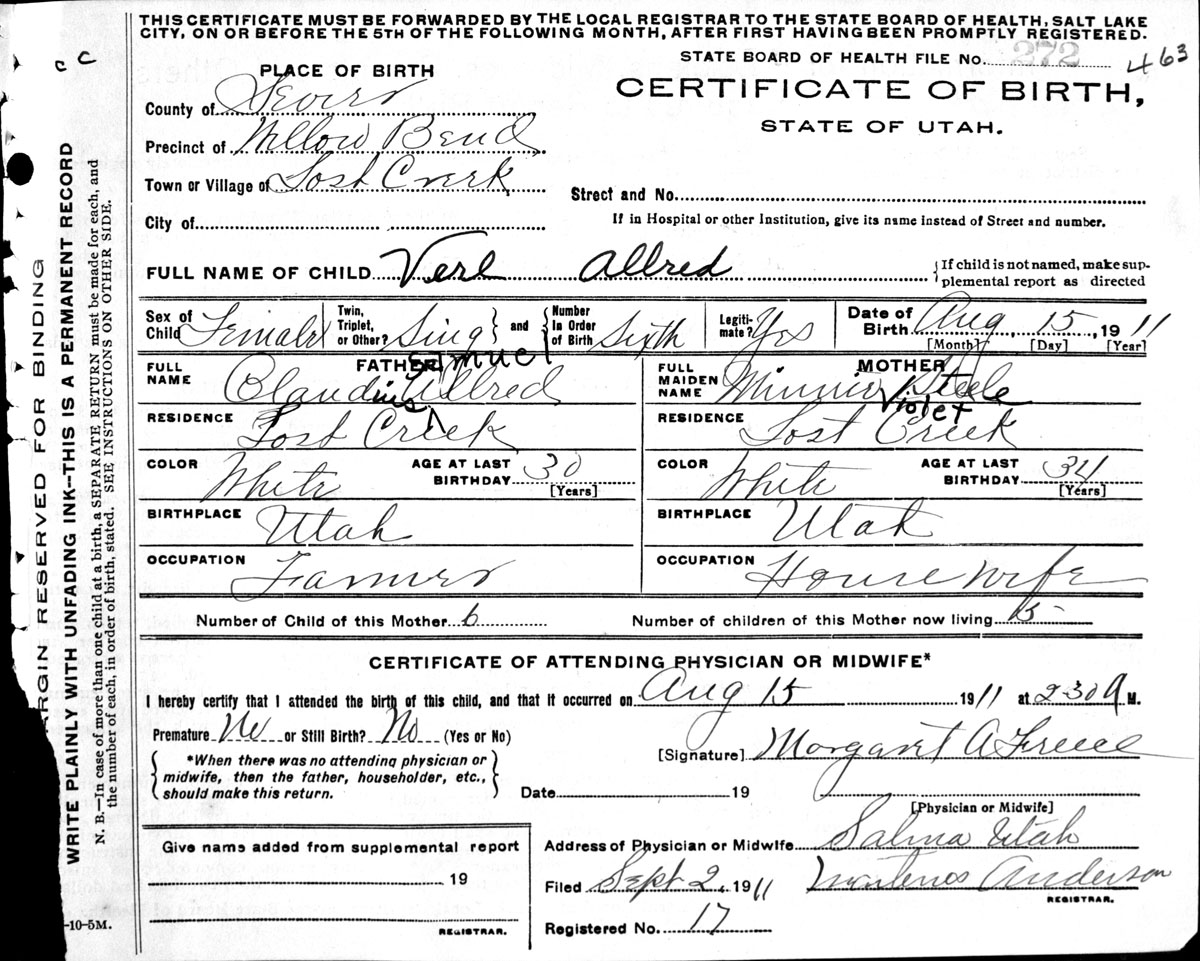 THIS CERTIFICATE MUST BE FORWARDED BY THE LOCAL REGISTRAR TO THE STATE BOARD OF HEALTH, SALT LAKE
CITY, ON OR BEFORE THE 5TH OF THE FOLLOWING MONTH, AFTER FIRST HAVING BEEN PROMPTLY REGISTERED.
STATE BOARD OF HEALTH FILE No. 272 463
c c
PLACE OF BIRTH
CERTIFICATE OF BIRTH,
STATE OF UTAH.
County of Sevier
Precinct of Willow Bend
Town or Village of Lost Creek
Street and No.
City of
If in Hospital or other Institution, give its name instead of Street and number.
FULL NAME OF CHILD Verl Allred
{If child is not named, make sup-
plemental report as directed
Sex of Child Female
Twin, Triplet, or Other? Sing } and { Number In Order of Birth Sixth
Legiti-mate? Yes
Date of Birth Aug, 15, 1911
[Month] [Day] [Year]
FATHER
FULL NAME Claudius Samuel Allred
MOTHER
FULL MAIDEN NAME Minnie Violet Steele
RESIDENCE Lost Creek
RESIDENCE Lost Creek
COLOR White AGE AT LAST BIRTHDAY 30 [Years]
COLOR White AGE AT LAST BIRTHDAY 34 [Years]
BIRTHPLACE Utah
BIRTHPLACE Utah
OCCUPATION Farmer
OCCUPATION House wife
Number of Child of this Mother 6
Number of children of this Mother now living
CERTIFICATE OF ATTENDING PHYSICIAN OR MIDWIFE*
I hereby certify that I attended the birth of this child, and that it occurred on Aug 15 1911 at 2-30 M.
Premature No or Still Birth? No (Yes or No)
[Signature] Margaret A
{ *When there was no attending physician or
midwife, then the father, householder, etc.,
should make this return. }
Date 19
[Physician or Midwife]
Give name added from supplemental report
19
REGISTRAR.
Address of Physician or Midwife Salina Utah
Filed Sept 2, 1911 Anderson
REGISTRAR.
Registered No. 17
-10-5M.
ARGIN RESERVED FOR BINDING
WRITE PLAINLY WITH UNFADING INK--THIS IS A PERMANENT RECORD
N. B.—In case of more than one child at a birth, a SEPARATE RETURN must be made for each, and
the number of each, in order of birth, stated. SEE INSTRUCTIONS ON OTHER SIDE.